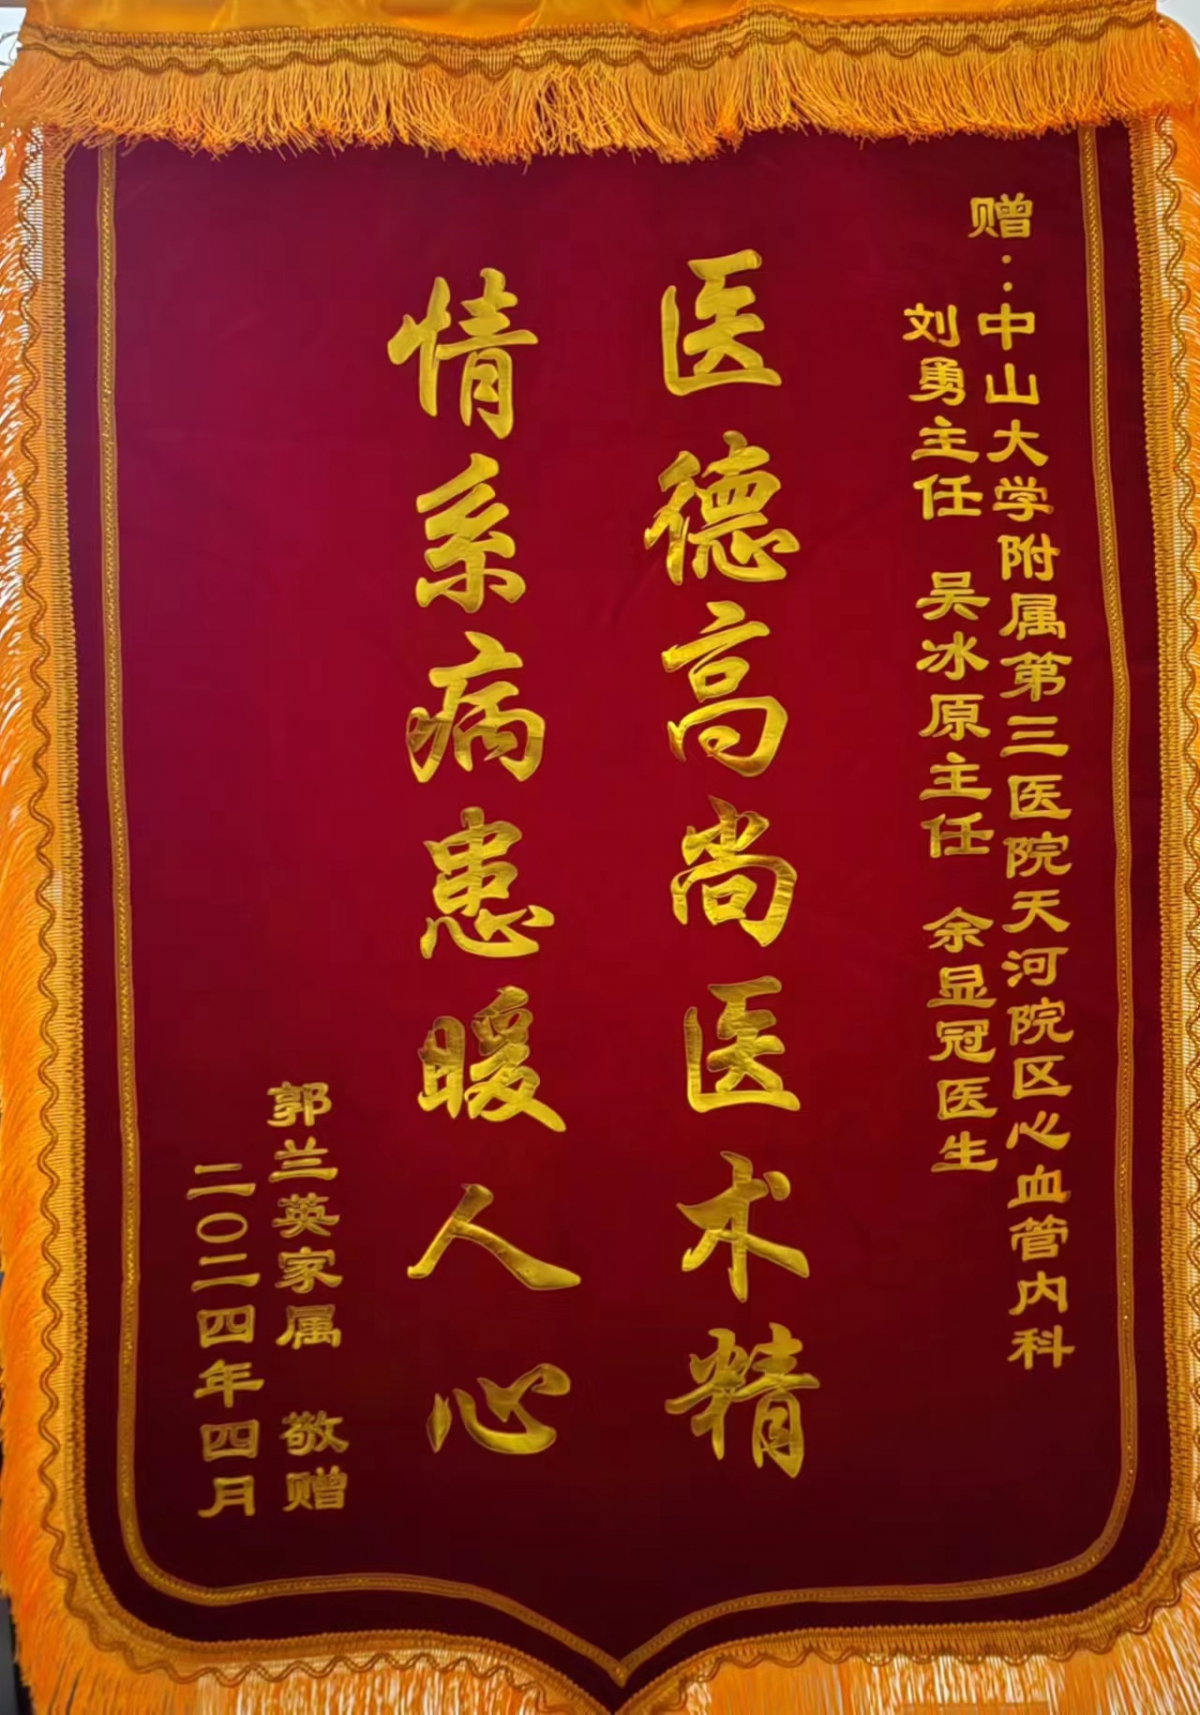 赠：中山大学附属第三医院天河院区心血管内科
刘勇主任 吴冰原主任 余显冠医生
医德高尚医术精
情系病患暖人心
郭兰英家属 敬赠
二〇二四年四月